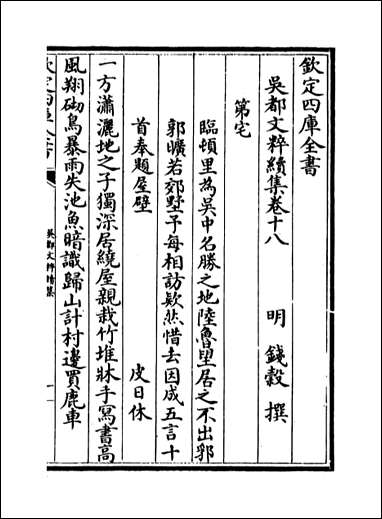 欽定四庫全書
吳都文粹續集卷十八
明 錢穀 撰
第宅
臨頓里為吳中名勝之地陸魯望居之不出郛
郭曠若郊墅予每相訪欵然惜去因成五言十
首奉題屋壁 皮日休
一方瀟灑地之子獨深居繞屋親栽竹堆牀手寫書高
風翔砌鳥暴雨失池魚暗識歸山計村邊買鹿車
欽定四庫全書
吳都文粹續集
一